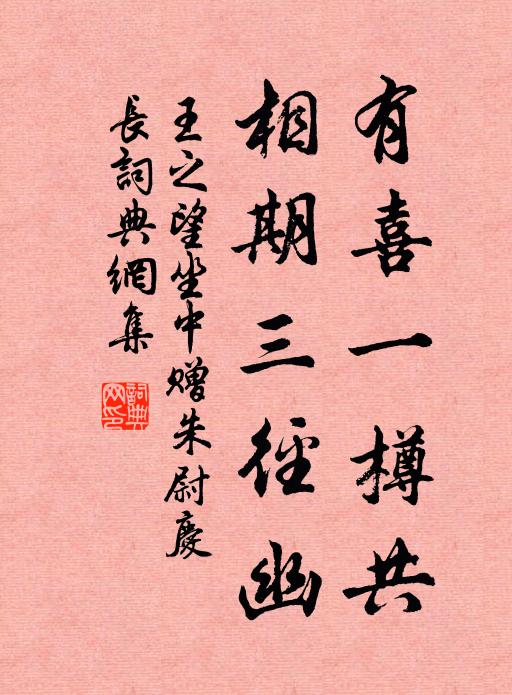 有喜一樽共
相期三徑幽
王之望坐中贈朱尉慶
長詞典網集
詞典网印